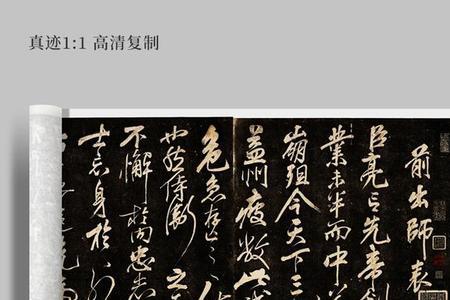 真迹1:1 高清复制
前出師表
臣亮言先帝創
業未半而中道
崩殂今天下三
益州疲敝此
危急存亡之
也然侍衛之
不懈於內忠志
士忘身於外